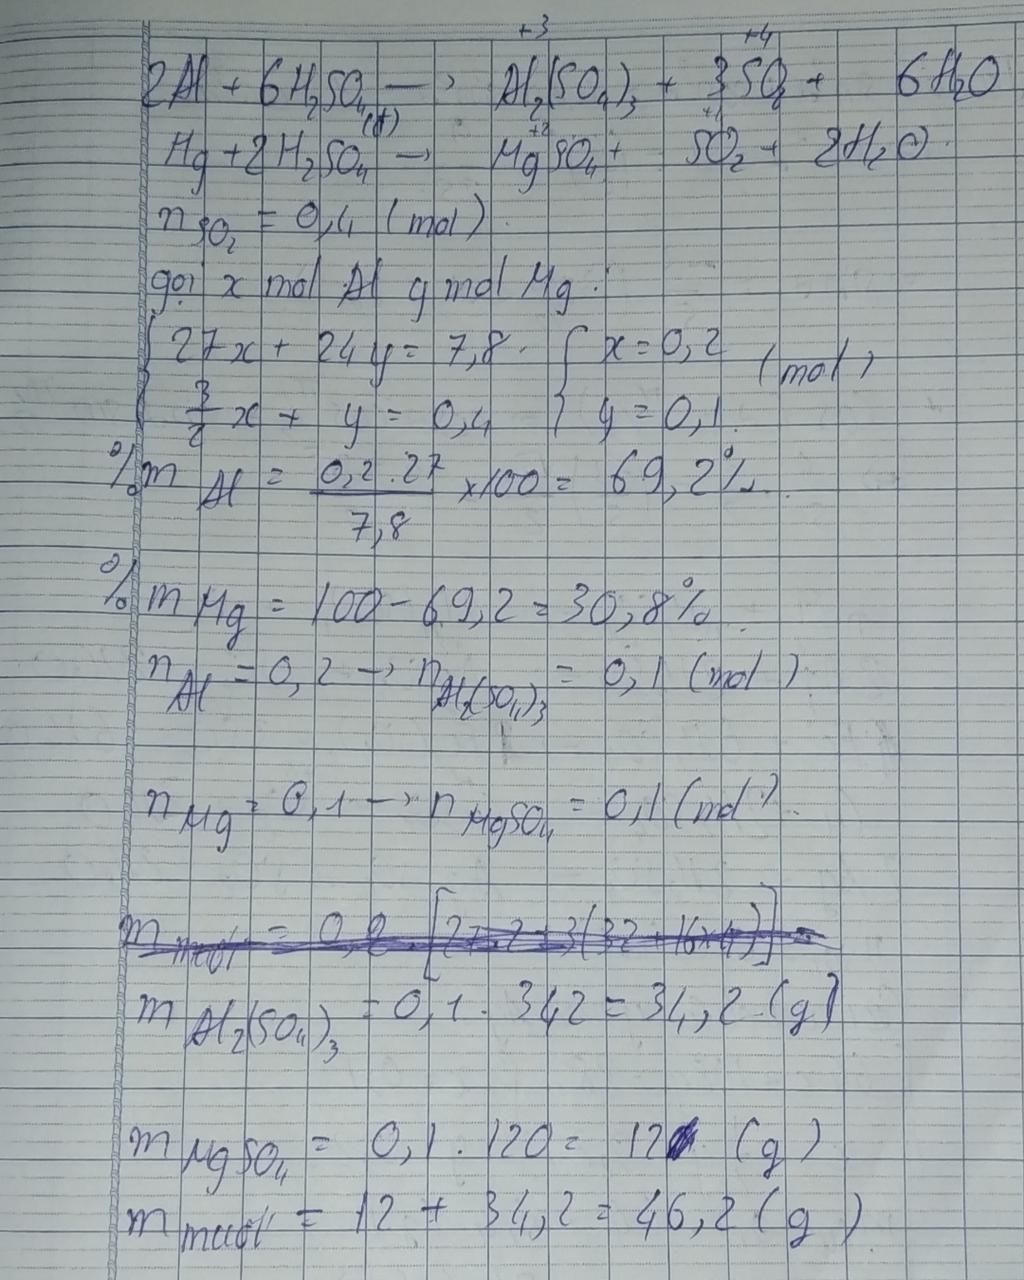 +3 +4
2Al + 6H₂SO₄ → Al₂(SO₄)₃ + 3SO₂ + 6H₂O
(đ)
+2 +4
Mg + 2H₂SO₄ → MgSO₄ + SO₂ + 2H₂O
n SO₂ = 0,4 (mol).
gọi x mol Al y mol Mg.
{ 27x + 24y = 7,8 { x = 0,2 (mol)
3/2 x + y = 0,4 y = 0,1
%m Al = 0,2.27/7,8 ×100 = 69,2%.
%m Mg = 100 - 69,2 = 30,8%.
n Al = 0,2 → n Al₂(SO₄)₃ = 0,1 (mol)
n Mg = 0,1 → n MgSO₄ = 0,1 (mol).
m muối = 0,2.[27.2+3(32+16×4)] =
m Al₂(SO₄)₃ = 0,1.342 = 34,2 (g)
m MgSO₄ = 0,1.120 = 12 (g)
m muối = 12 + 34,2 = 46,2 (g)